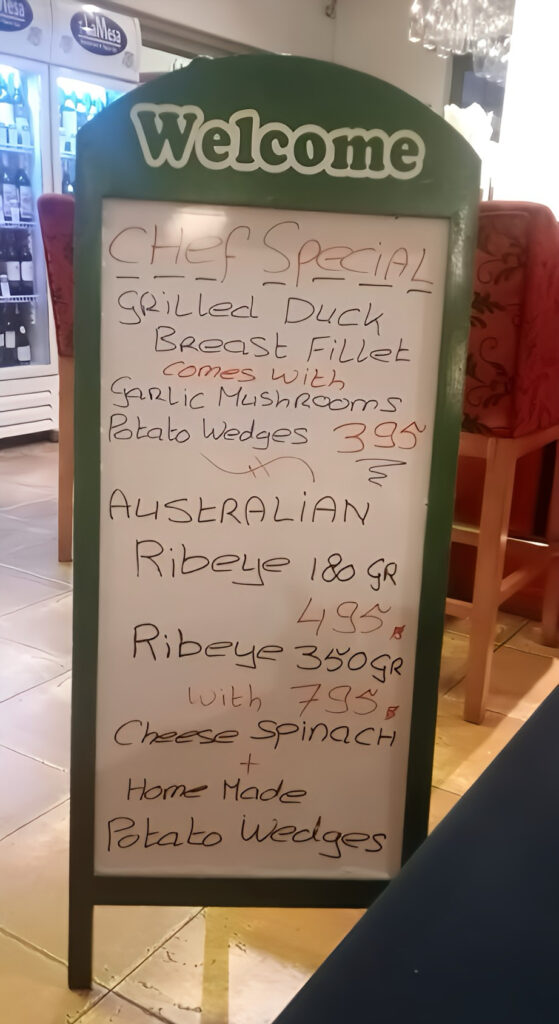 La Mesa
La Mesa
Welcome
CHef SpeciAL
GRiLLeD Duck
BReast FiLLet
comes with
GaRLic MusHRooms
Potato Wedges 395
AUSTRALiAN
Ribeye 180 GR
495.฿
Ribeye 350 GR
with 795.฿
Cheese SpinacH
+
Home Made
Potato Wedges